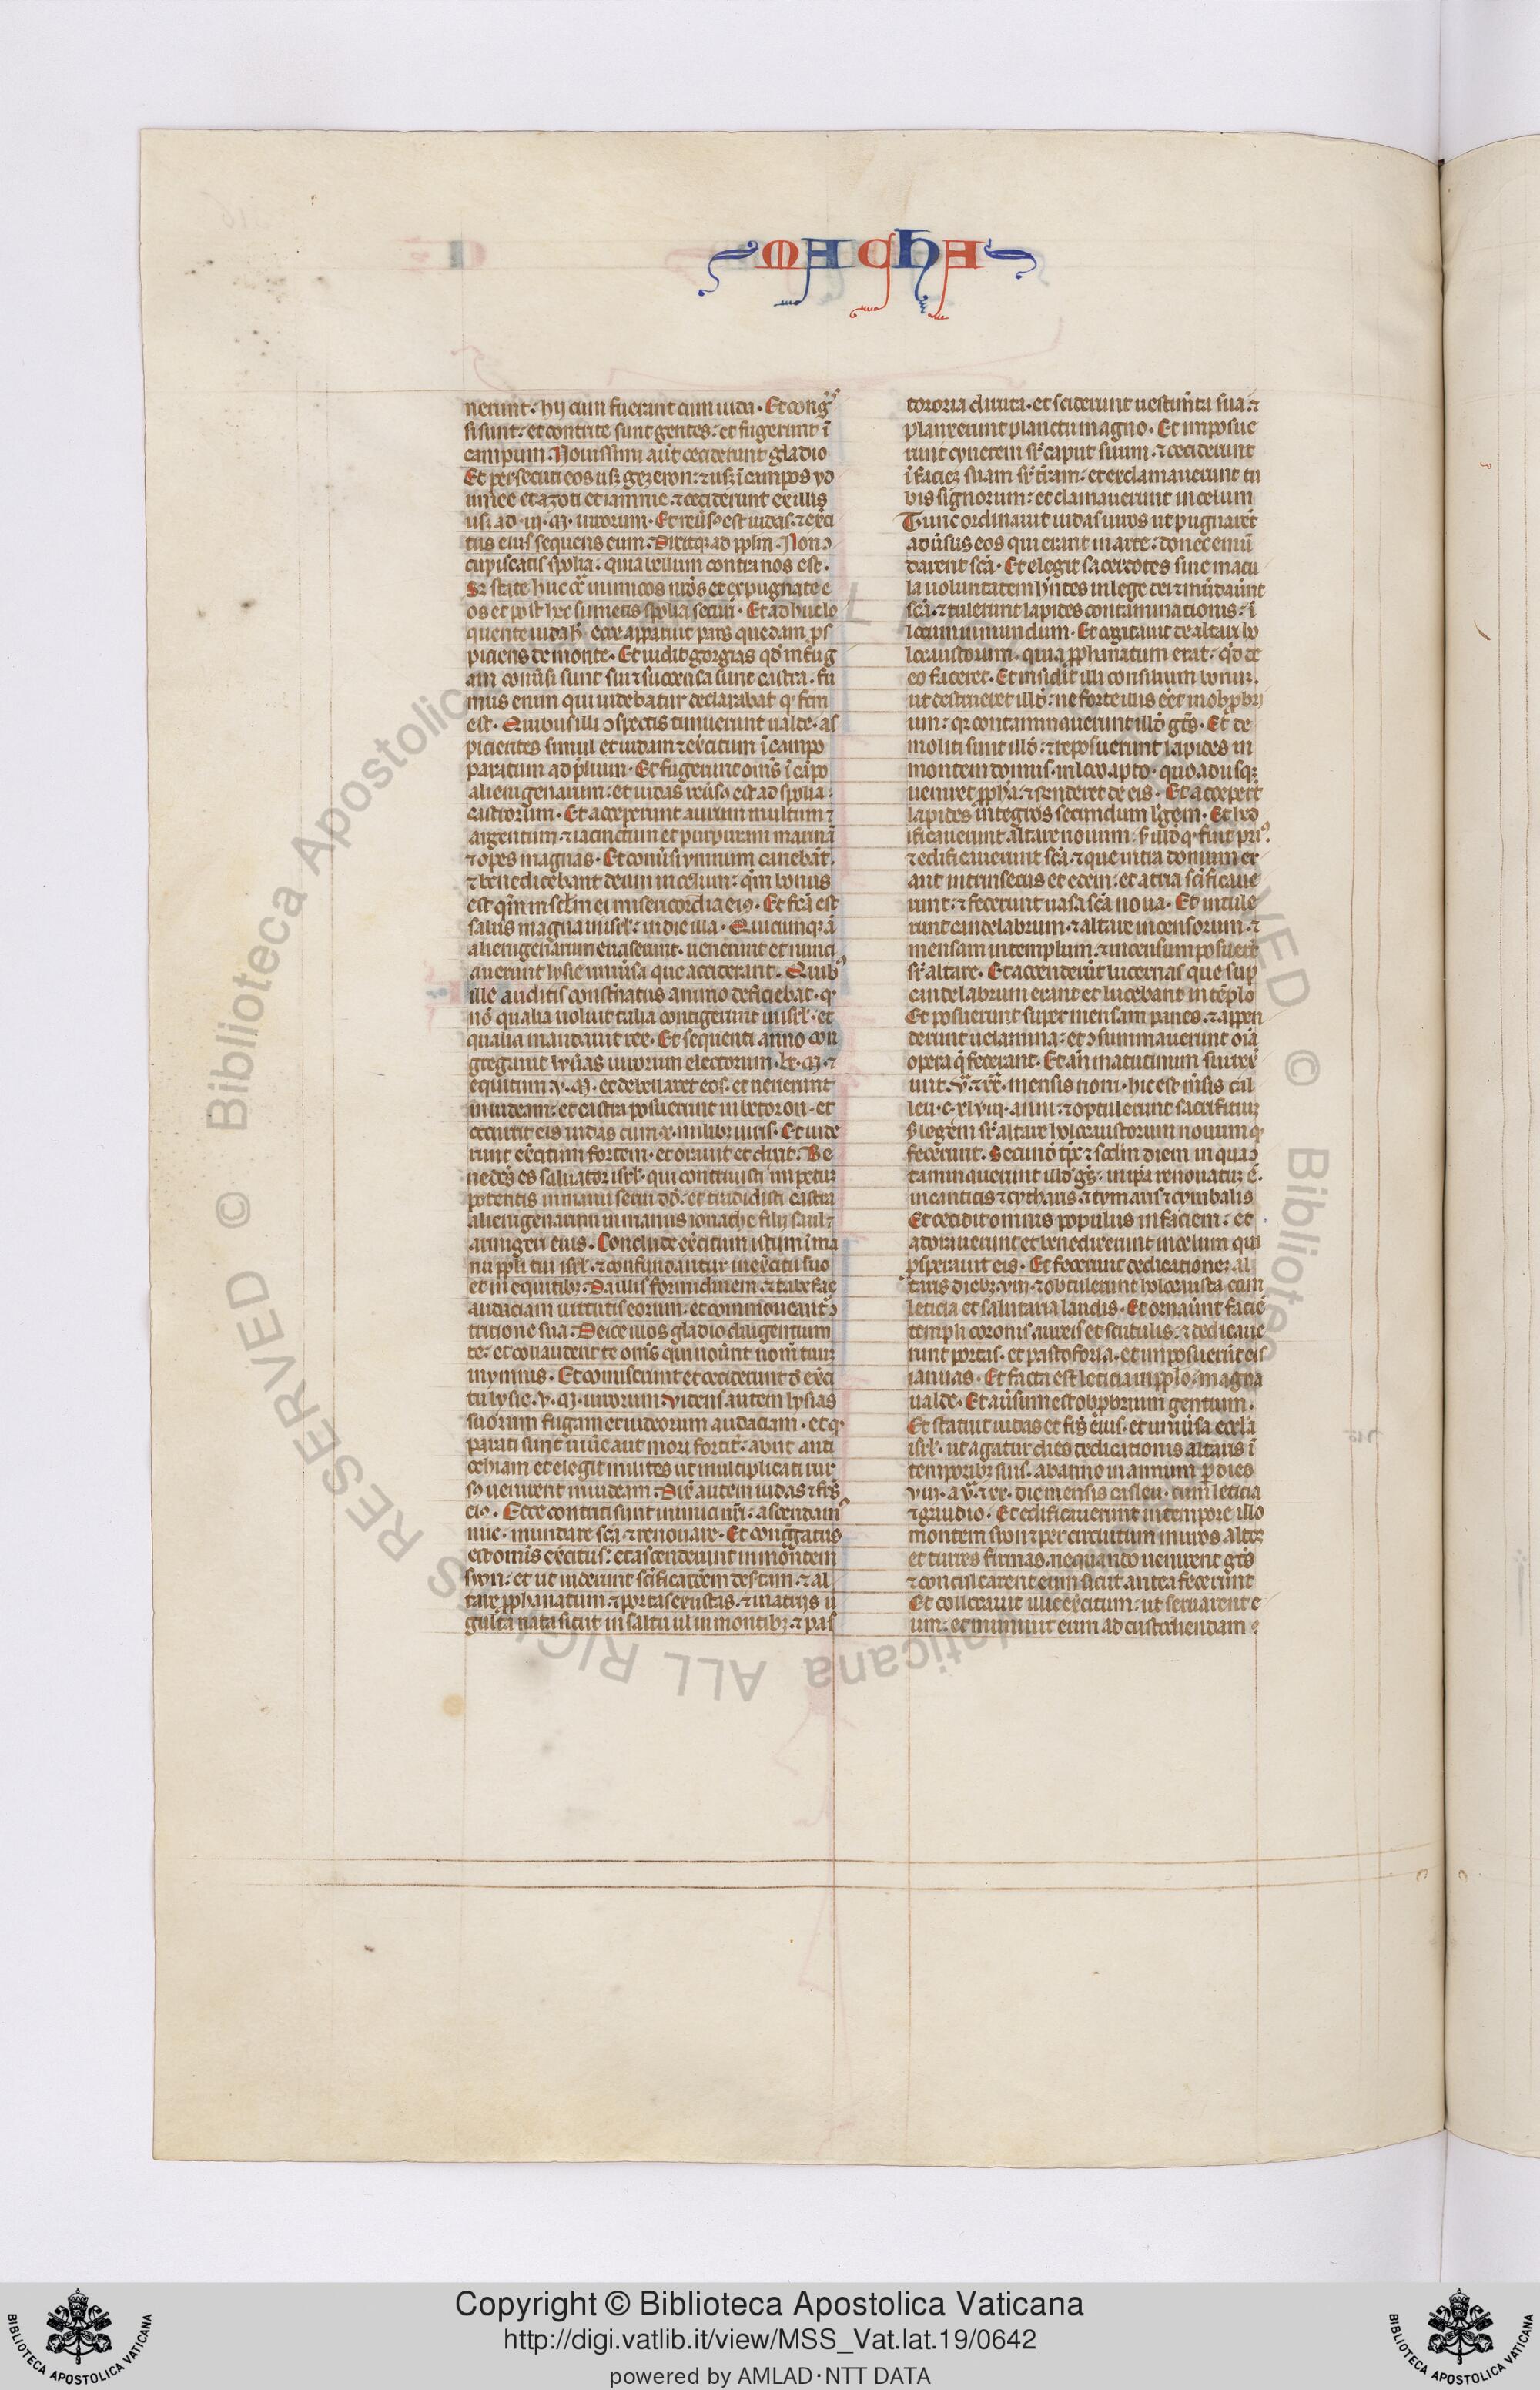 MACHA
nerunt. hij cum fuerant cum iuda. Et congͣs
si sunt: et contrite sunt gentes: et fugerunt ī
campum. Nouissimi aūt ceciderunt gladio
Et persecuti eos usqꝫ gezeron: ⁊ usqꝫ ī campos yd
umee et azoti et iamnie. ⁊ ceciderunt ex illis
usqꝫ ad .iij. M. uirorum. Et reuſꝰ est iudas. ⁊ ex̄ci
tus eius sequens eum. Dixitqꝫ ad pplm. Non ↄ
cupiscatis spolia: quia bellum contra nos est.
os et post hec sumetis spolia securi. Et adhuc lo
quente iuda h̄ ecce apparuit pars quedam ꝓs
piciens de monte. Et uidit gorgias qd̓ in fug
am conūsi sunt sui ⁊ succensa sunt castra. fu
mus enim qui uidebatur declarabat qͦ fcm̄
est. Quibus illi ↄspectis timuerunt ualde. as
picientes simul et iudam ⁊ ex̄citum ī campo
paratum ad p̄lium. Et fugerunt om̄s ī cāpo
alienigenarum: et iudas reūsꝰ est ad spolia.
castrorum. Et acceperunt aurum multum ⁊
argentum. ⁊ iacinctum et purpuram marinā
⁊ opes magnas. Et conūsi ymnum canebāt.
⁊ benedicebant deum in celum: qm̄ bonus
est qm̄ in sclm̄ ei misericordia eiꝰ. Et fcā est
salus magna in isrl: in die illa. Quicumqꝫ ā
alienigenarum euaserunt. uenerunt et nunci
auerunt lysie uniūsa que acciderant. Quibꝰ
ille auditis const̄natus animo deficiebat. qͦ
nō qualia uoluit talia contigerunt in isrl. et
qualia mandauit rex. Et sequenti anno con
gregauit lysias uirorum electorum .lx. M. ⁊
equitum .v. M. et debellaret eos. et uenerunt
in iudeam: et castra posuerunt in betoron. et
occurrit eis iudas cum .x. milibꝫ uiris. Et uide
runt ex̄citum fortem. et orauit et dixit. Be
nedc̄s es saluator isrl. qui contriuisti impetuꝫ
potentis in manu serui dd̓. et tradidisti castra
alienigenarum in manus ionathe filij saul ⁊
armigeri eius. Conclude ex̄citum istum ī ma
nu ppli tui isrl. ⁊ confundantur in ex̄citu suo
et in equitibꝫ. Da illis formidinem. ⁊ tabefac
audaciam uirtutis eorum. et commoueantʳ ↄ
tritione sua. Deice illos gladio diligentium
te: et collaudent te om̄s qui nouūnt nom̄ tuuꝫ
in ymnis. Et comiserunt et ceciderunt d̓ ex̄ci
tu lysie .v. M. uirorum. Videns autem lysias
suorum fugam et iudeorum audaciam. et qͦ
parati sunt uiuē aut mori fortit̄. abiit anti
ochiam et elegit milites ut multiplicati rur
sꝰ uenirent in iudeam. Dix̄ autem iudas ⁊ frs̄
eiꝰ. Ecce contriti sunt inimici nr̄i: ascendamꝰ
nūc. mundare scā ⁊ renouare. Et cong̓gatus
est om̄is ex̄citus: et ascenderunt in montem
syon: et ut uiderunt sc̄ificatōem desertam. ⁊ al
tare ꝓphanatum. ⁊ portas exustas. ⁊ in atrijs ū
gulta nata sicut in saltu ul̄ in montibꝫ. ⁊ pas
toforia diruta. et sciderunt uestim̄ta sua. ⁊
planxerunt planctu magno. Et imposue
runt cynerem sr̄ caput suum. ⁊ ceciderunt
ī facieꝫ suam sr̄ t̄ram: et exclamauerunt tu
bis signorum: et clamauerunt in celum
Tunc ordinauit iudas uiros ut pugnarēt
adūsus eos qui erant in arce: donec emū
darent scā. Et elegit sacerdotes sine macu
la uoluntatem hn̄tes in lege dei ⁊ mūdaūnt
scā. ⁊ tulerunt lapides contaminationis: ī
locum inmundum. Et cogitauit de altari ho
locaustorum. quia ꝓphanatum erat. qd̓ de
eo faceret. Et incidit illi consilium bonuꝫ.
ut destrueret illd̓: ne forte illis eēt in obp̄bri
um: qꝫ contaminauerunt illd̓ gtēs. Et de
moliti sunt illd̓: ⁊ reposuerunt lapides in
montem domus. in loco apto. quo adusqꝫ
ueniret ꝓpha: ⁊ r̄nderet de eis. Et acceperūt
lapides integros secundum legem. Et hed
ificauerunt altare nouum. s̄ illd̓ qͦ fuit priꝰ.
⁊ edificauerunt scā. ⁊ que intra domum er
ant intrinsecus et edem: et atria sc̄ificaue
runt: ⁊ fecerunt uasa scā noua. Et intule
runt candelabrum. ⁊ altare incensorum. ⁊
mensam in templum. ⁊ incensum posuerūt
sr̄ altare. Et accenderūt lucernas que sup̄
candelabrum erant et lucebant in tēplo
Et posuerunt super mensam panes. ⁊ appen
derunt uelamina: et ↄsummauerunt oīa
opera q̄ fecerant. Et ān̄ matutinum surrex̄
leu. c. xl viii. anni: ⁊ optulerunt sacrificiuꝫ
s̄ legem sr̄ altare holocaustorum nouum qͦ
fecerunt. Secundū tp̄c ⁊ scdm̄ diem in qua ↄ
taminauerunt illd̓ gtēs: in ip̄a renouatuꝫ ē.
in canticis ⁊ cytharis. ⁊ tymanis ⁊ cymbalis
Et cecidit omnis populus in faciem: et
adorauerunt et benedixerunt in celum qui
ꝓsperauit eis. Et fecerunt dedicationeꝫ al
taris diebꝫ .viii. ⁊ obtulerunt holocausta cum
leticia et salutaria laudis. Et ornaūnt faciē
templi coronis aureis et scutulis. ⁊ dedicaue
runt portas. et pastoforia. et imposuerūt eis
ianuas. Et facta est leticia in pplo magna
ualde. Et aūsum est obp̄brium gentium.
Et statuit iudas et frs̄ eius. et uniūsa eccl̄a
isrl. ut agatur dies dedicationis altaris ī
temporibꝫ suis. ab anno in annum ꝑ dies
viii. a vͣ. ⁊ xx. die mensis casleu. cum leticia
⁊ gaudio. Et edificauerunt in tempore illo
montem syon ⁊ per circuitum muros altos
et turres firmas. nequando uenirent gtēs
⁊ conculcarent eum sicut antea fecerunt
Et collocauit illic ex̄citum: ut seruarent e
um: et muniuit eum ad custodiendam
Copyright © Biblioteca Apostolica Vaticana
http://digi.vatlib.it/view/MSS_Vat.lat.19/0642
powered by AMLAD·NTT DATA
BIBLIOTECA APOSTOLICA VATICANA
BIBLIOTECA APOSTOLICA VATICANA